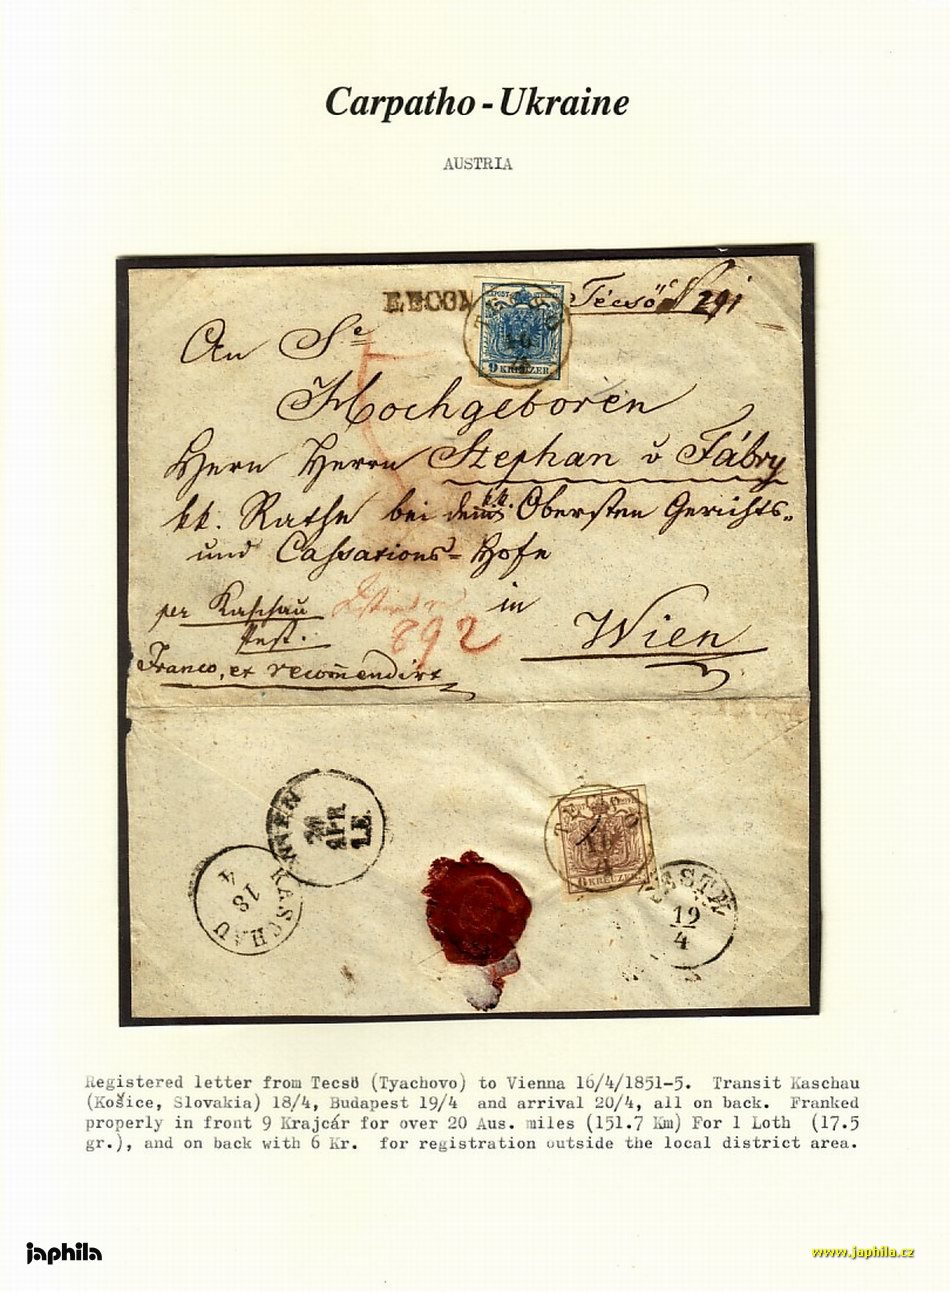 Carpatho - Ukraine
AUSTRIA
RECOM
TECSÖ
16
4
9 KREUZER
Técsö
An Se
Hochgeboren
Herrn Herrn Stephan v Fábry
kk. Rathe bei dem k.k. Obersten Gerichts-
und Cassations-Hofe
per Kaschau in
Pest. 892 Wien
Franco, et recom̄endirt
WIEN
20
APR.
I.E.
KASCHAU
18
4
TECSÖ
16
4
6 KREUZER
PESTH
19
4
Registered letter from Tecsö (Tyachovo) to Vienna 16/4/1851-5. Transit Kaschau
(Košice, Slovakia) 18/4, Budapest 19/4 and arrival 20/4, all on back. Franked
properly in front 9 Krajcár for over 20 Aus. miles (151.7 Km) For 1 Loth (17.5
gr.), and on back with 6 Kr. for registration outside the local district area.
japhila
www.japhila.cz